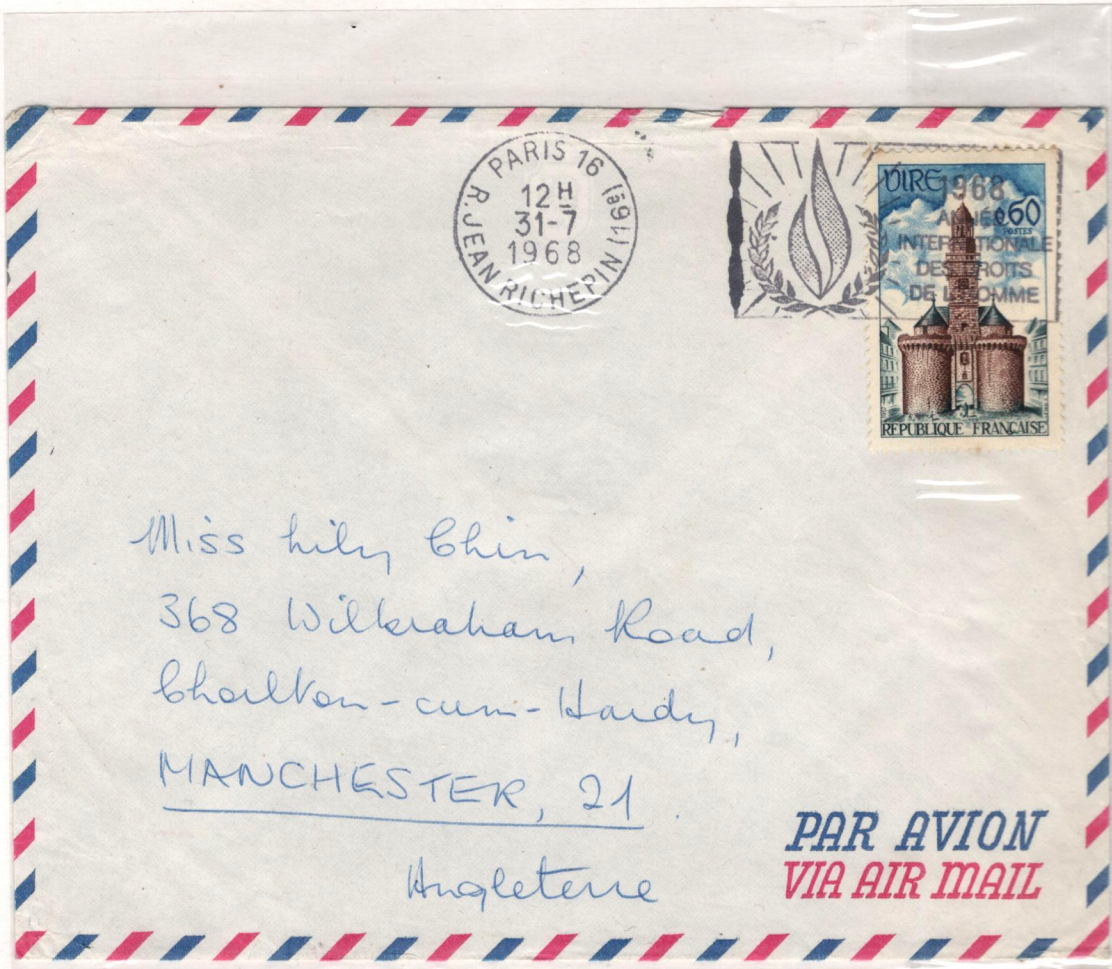 PARIS 16
12H
31-7
1968
R. JEAN RICHEPIN (16è)
VIRE
0,60
POSTES
1968
ANNÉE
INTERNATIONALE
DES DROITS
DE L'HOMME
REPUBLIQUE FRANÇAISE
Miss Lily Chin,
368 Wilbraham Road,
Chorlton-cum-Hardy,
MANCHESTER, 21.
Angleterre
PAR AVION
VIA AIR MAIL